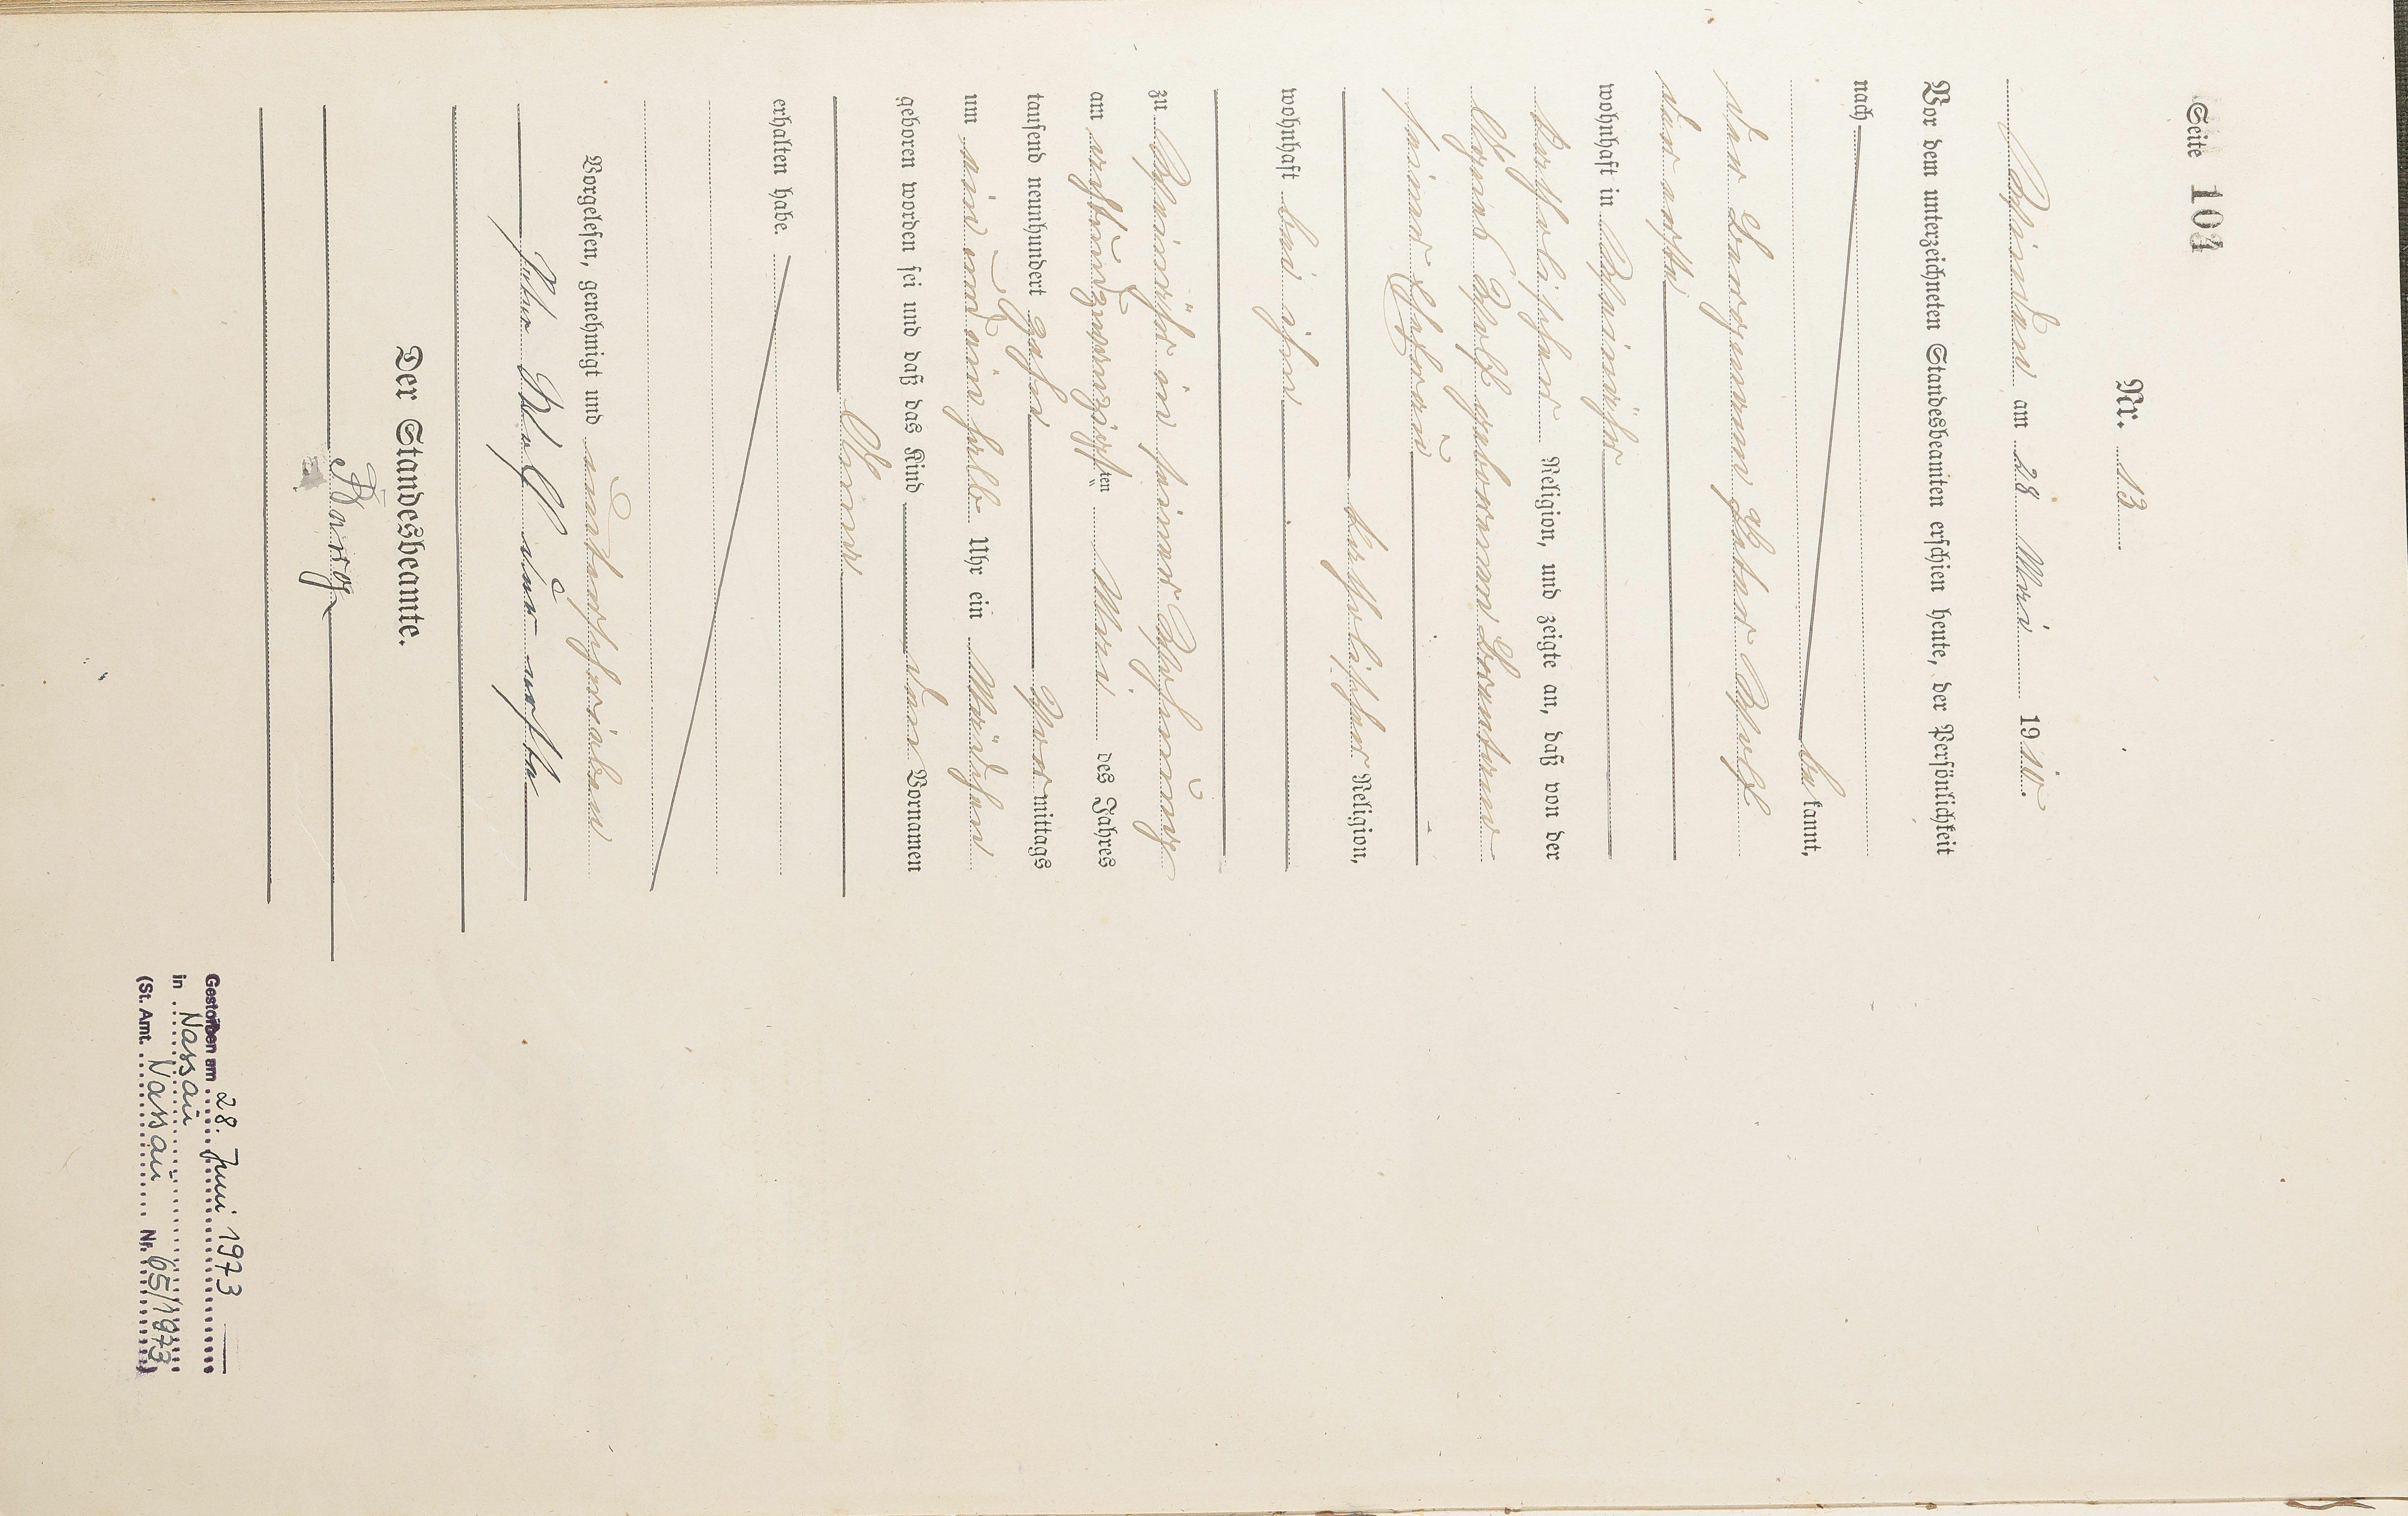 Seite 104
Nr. 13
Winden am 28 Mai 1910.
Vor dem unterzeichneten Standesbeamten erschien heute, der Persönlichkeit
nach
be kannt,
der Bergmann Peter Wolf
der erste
wohnhaft in Weinähr
katholischer Religion, und zeigte an, daß von der
Agnes Wolf geborenen
seiner Ehefrau
katholischer Religion,
wohnhaft bei ihm
zu Weinähr in seiner Wohnung
am achtundzwanzigsten Mai des Jahres
tausend neunhundert zehn Vor mittags
um ein und ein halb Uhr ein Mädchen
geboren worden sei und daß das Kind den Vornamen
Anna
erhalten habe.
Vorgelesen, genehmigt und unterschrieben
Peter Wolf der erste
Der Standesbeamte.
Gestorben am 28. Juni 1973
in Nassau
(St. Amt. Nassau Nr. 65/1973)